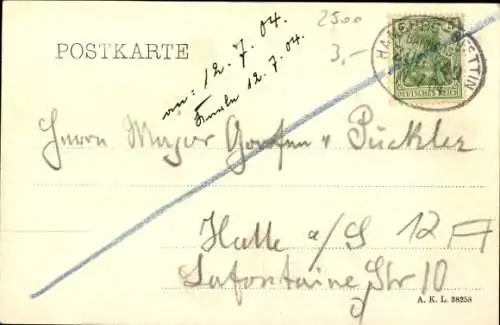 2500
3,-
POSTKARTE
an: 12.7.04.
12.7.04.
DEUTSCHES REICH
Herrn Major Grafen v Pückler
Halle a/S 12 A
Lafontaine Str 10
A. K. L. 38258